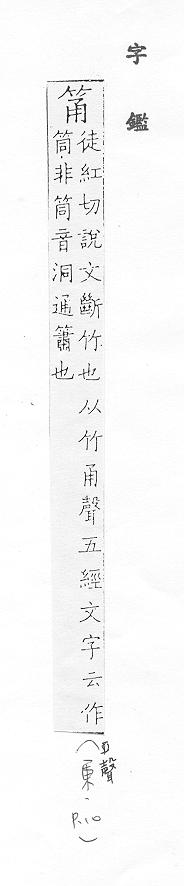 字鑑
筩
徒紅切說文斷竹也从竹甬聲五經文字云作
筒非筒音洞通簫也
(平聲
東.
P.10
)